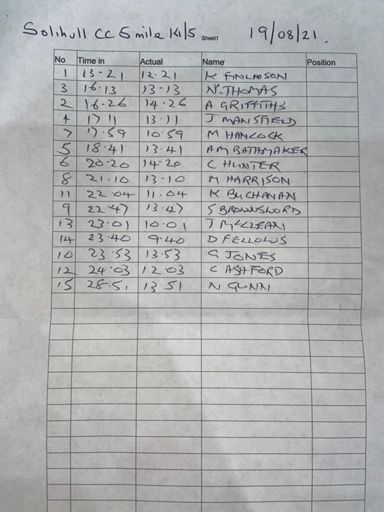 Solihull CC 5 mile K41/5 Sheet1 19/08/21.
No Time in Actual Name Position
1 13-21 12.21 K FINLAYSON
3 16.13 13-13 N.THOMAS
2 16.26 14-26 A GRIFFITHS
4 17 11 13.11 J MANSFIELD
7 17.59 10.59 M HANCOCK
5 18.41 13.41 AM BATHMAKER
6 20.20 14.20 C HUNTER
8 21.10 13-10 M HARRISON
11 22.04 11.04 K BUCHANAN
9 22.47 13.47 S BROWNSWORD
13 23.01 10.01 J McCLEAN
14 23.40 9.40 D FELLOWS
10 23.53 13.53 G JONES
12 24.03 12.03 C ASHFORD
15 28.51 13.51 N GUNN